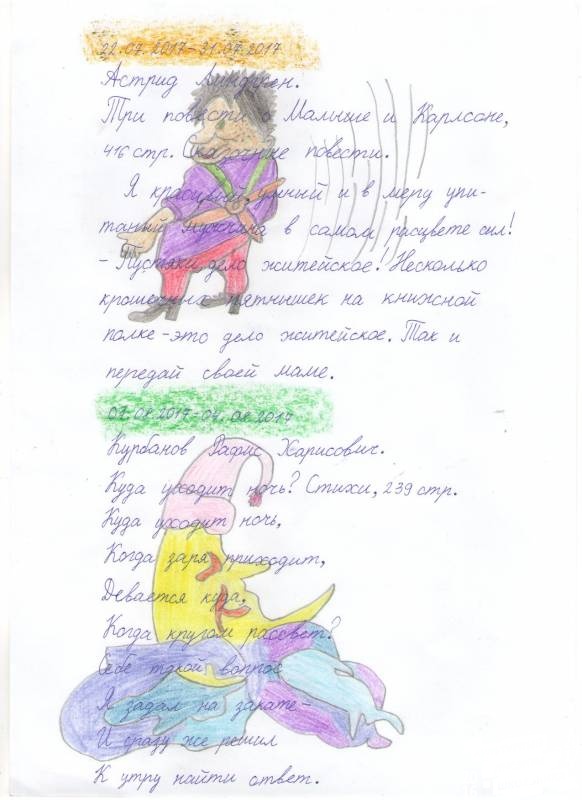 22.07.2017-31.07.2017
Астрид Линдгрен.
Три повести о Малыше и Карлсоне,
416 стр. Сказочные повести.
Я красивый, умный и в меру упи-
танный мужчина в самом расцвете сил!
- Пустяки, дело житейское! Несколько
крошечных пятнышек на книжной
полке - это дело житейское. Так и
передай своей маме.
01.08.2017-04.08.2017
Курбанов Рафис Харисович.
Куда уходит ночь? Стихи, 239 стр.
Куда уходит ночь,
Когда заря приходит,
Девается куда,
Когда кругом рассвет?
Себе такой вопрос
Я задал на закате-
И сразу же решил
К утру найти ответ.